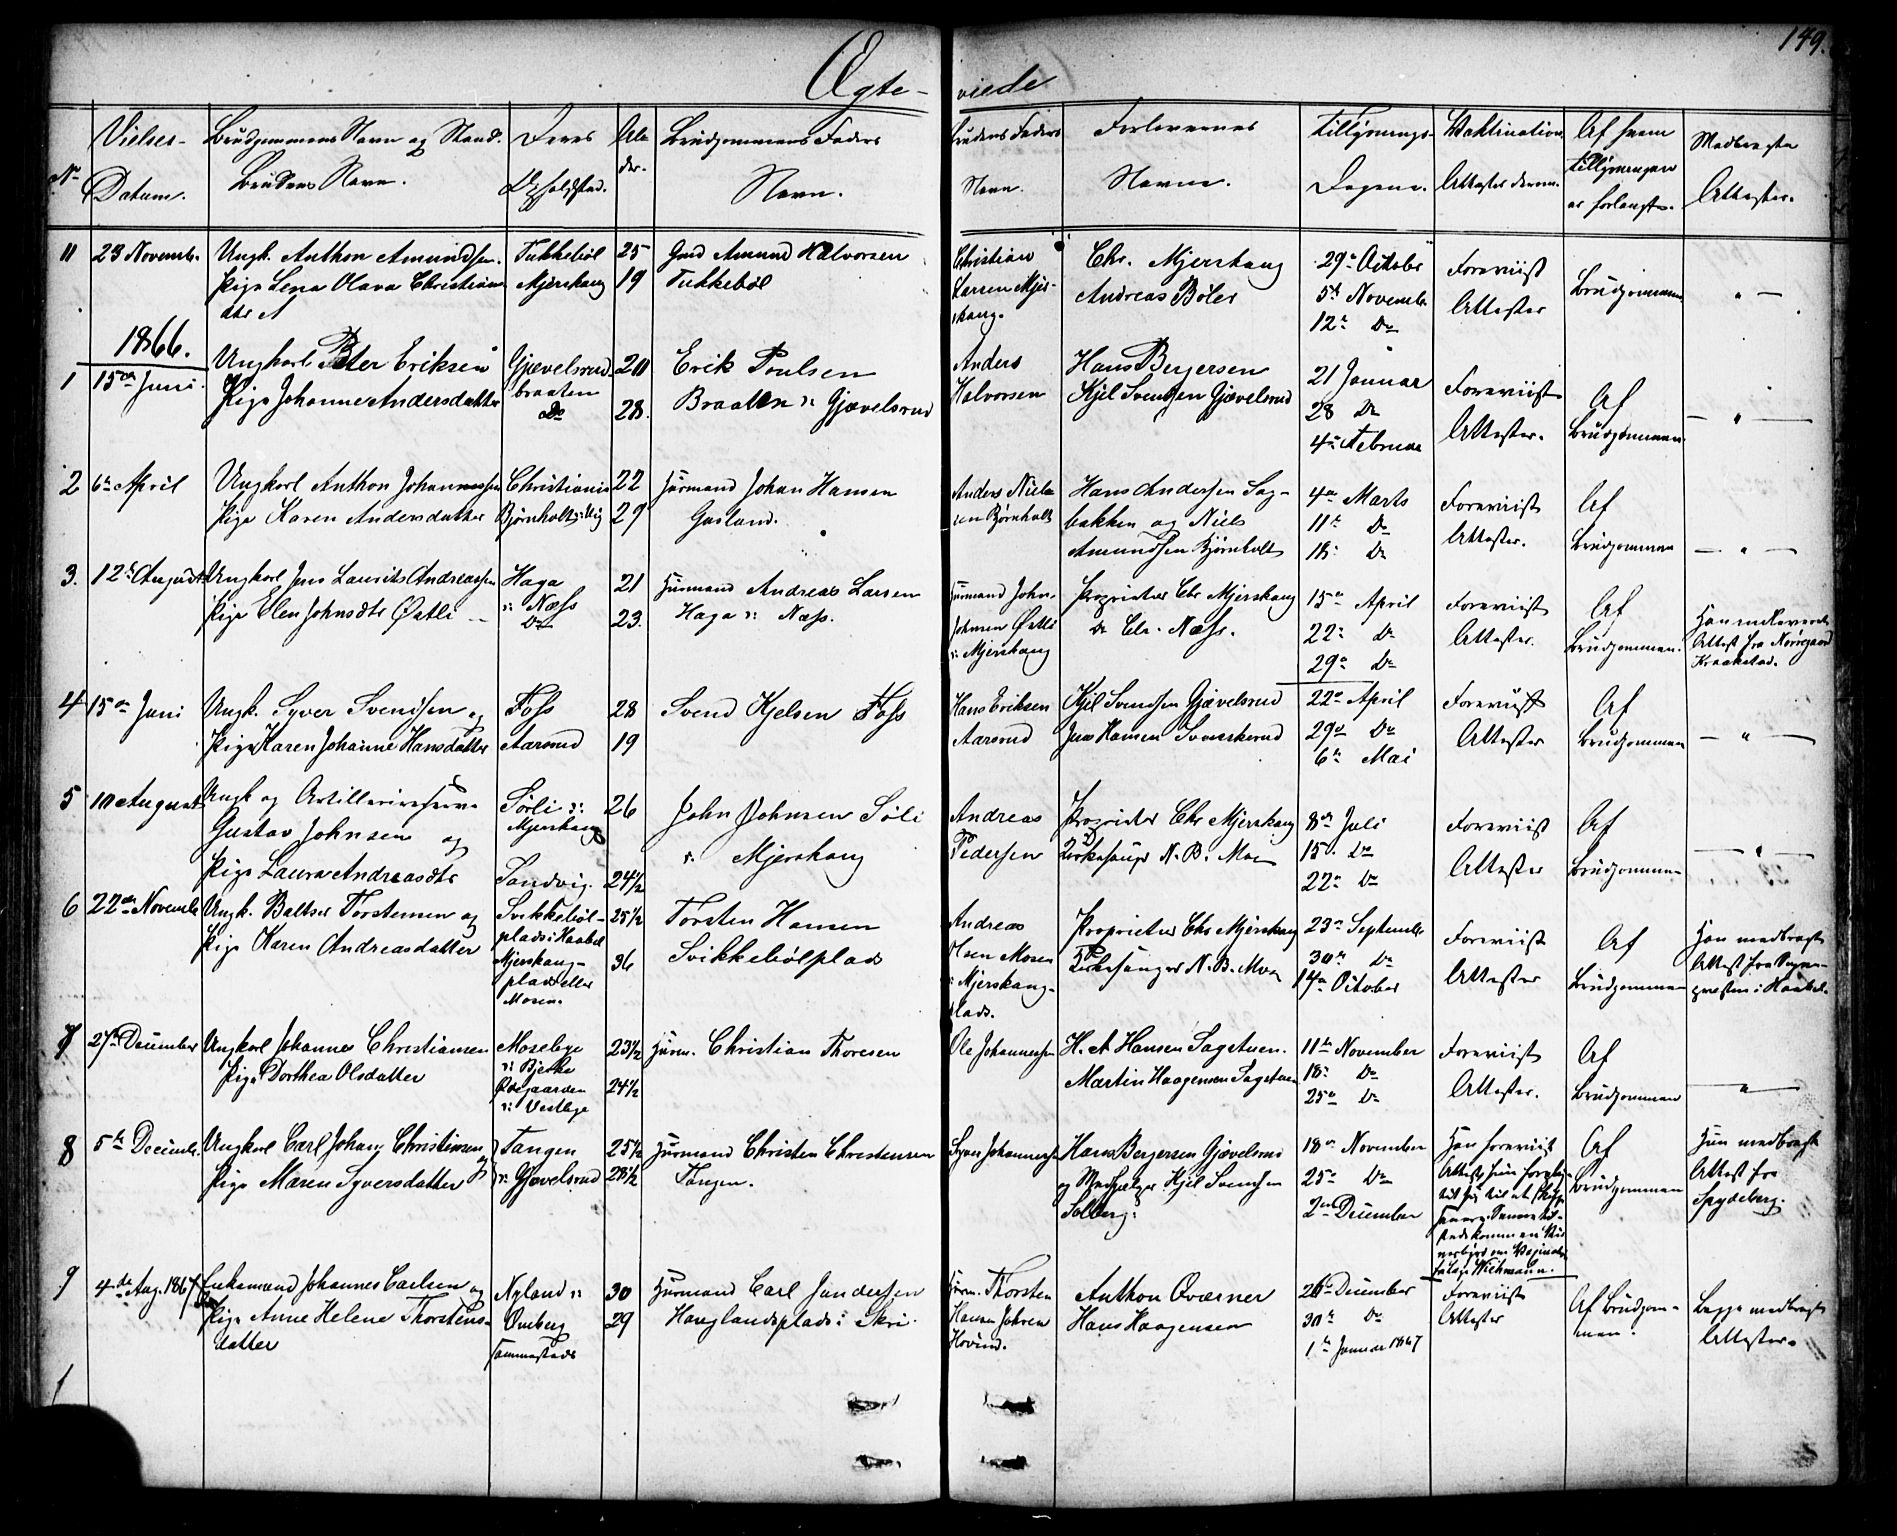 149.
Ægte- viede
No
Vielses-
Datum.
Brudgommens Navn og Stand.
Brudens Navn.
Deres
Opholdsted.
Al-
der.
Brudgommens Faders
Navn.
Brudens Faders
Navn.
Forlovernes
Navne.
Tillysnings-
Dagene.
Vaktination
Attester derom.
Af hvem
Tillysningen
er forlangt.
Medbragte
Attester.
11 23 Novemb.
Ungk. Anthon Amundsen.
Pige Lena Olava Christians
dtr
Tukkebøl
Mjerskaug
25
19
Gmd Amund Halvorsen
Tukkebøl
Christian
Larsen Mjer-
skaug.
Chr. Mjerskaug
Andreas Bøler
29de October
5te Novembr
12te Do
Foreviist
Attester
Brudgommen
" —
1866.
1 15de Juni.
Ungkarl Peter Eriksen
Pige Johanne Andersdatter
Gjævelsrud-
braaten
Do
20
28.
Erik Poulsen
Braaten v: Gjævelsrud
Anders
Halvorsen
Hans Bergersen
Kjel Svendsen Gjævelsrud
21 Januar
28 Do
4de Februar
Foreviist
Attester.
Af
Brudgommen.
— " —
2 6te April
Ungkarl Anthon Johannessen
Pige Karen Andersdatter
Christiania
Bjørnholt
22
29
Huusmand Johan Hansen
Gasland.
Anders Niel-
sen Bjørnholt
Hans Andersen Sag-
bakken og Niels
Amundsen Bjørnholt
4de Marts
11te Do
18: Do
Foreviist
Attester.
Af
Brudgommen
— " —
3. 12te August
Ungkarl Jens Laurits Andreassen
Pige Elen Johnsdtr Østli —
Haga
v: Næss
Do
21
23.
Huusmand Andreas Larsen
Haga v: Næss.
Huusmand John
Johnsen Østli
v: Mjerskaug
Proprietær Chr Mjerskaug
Do Chr. Næss.
15de April
22de Do
29de Do
Foreviist
Attester.
Af
Brudgommen.
Attest fra
Kraakstad.
4 15de Juni
Ungk. Syver Svendsen og
Pige Karen Johanne Hansdatter
Foss
Aarsrud
28
19
Svend Kjelsen Foss
Hans Eriksen
Aarsrud
Kjel Svendsen Gjævelsrud
Jens Hansen
22de April
29de Do
6te Mai
Foreviist
Attester
Af
Brudgommen
— " —
5 10 August
Ungk og
Gustav Johnsen og
Pige Laura Andreasdtr
Sørli v:
Mjerskaug
Sandvig.
26
24½
John Johnsen Søli
v. Mjerskaug
Andreas
Pedersen
Proprietær Chr Mjerskaug
Kirkesanger N. B. Moe
8de Juli
15. Do
22de Do
Foreviist
Attester
Af
Brudgommen
— " —
6 22de Novembr
Ungk. Baltser Torstensen og
Pige Karen Andreasdatter
Svikkebøl-
plads i Haabøl
Mjerskaug-
plads eller
Mosen.
25½
36
Torsten Hansen
Svikkebølplads
Andreas
Olsen Mosen
v: Mjerskaug-
plads.
Proprietær Chr Mjerskaug
Kirkesanger N. B. Moe
23de Septembr
30te Do
14de October
Foreviist
Attester
Af
Brudgommen
Han medbragte
Attest fra Sogne-
præsten i Haabøl.
7 27de December
Ungkarl Johannes Christiansen
Pige Dorthea Olsdatter
Moselege
v: Bjerke
Ødegaarden
v: Vestlege
23½
24½
Huusm. Christian Thoresen
Ole Johannessen
H. A Hansen Sagstuen.
Martin Haagensen Sagstuen
11te November
18: Do
25de Do
Foreviist
Attester.
Af
Brudgommen
"
8 5te Decembr.
Ungkarl Carl Johan Christensen og
Pige Maren Syversdatter
Tangen
v: Gjævelsrud
25½
23½
Huusmand Christen Christensen
Tangen.
Syver Johannessen
Hans Bergersen Gjævelsrud
og Kjel Svendsen
Solberg.
18de November
25de Do
2den December
Han foreviist
Attest, hun
Wichmann.
Af
Brudgommen
Hun medbragt
Attest fra
Spydeberg.
9 4de Aug. 1867
Enkemand Johannes Carlsen og
Pige Anne Helene Thorstens-
datter
Nyland v:
Omberg
sammesteds
30
29
Huusmand Carl Gundersen
Hauglandsplads i Skri.
Huusm. Thorsten
Hansen
Hovind.
Anthon Oværner
Hans Haagensen
26de December
30te Do
1ste Januar 1867
Foreviist
Attester
Af Brudgom-
men.
Begge medbragt
Attester.